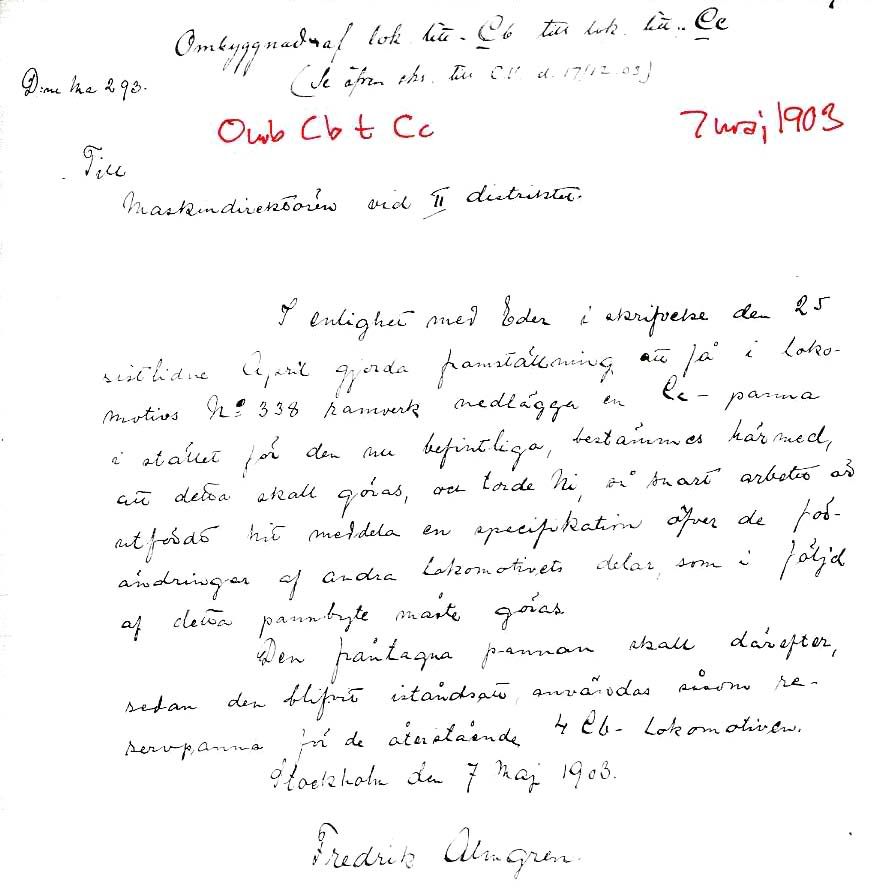 Ombyggnad af lok litt. Cb till lok. litt. Cc
(Se äfven skr. till C.U. d. 17/12 03)
D:nr Ma 293.
Omb Cb t Cc 7 maj 1903
Till
Maskindirektören vid II distriktet.
I enlighet med Eder i skrifvelse den 25
sistlidne April gjorda framställning att få i loko-
motivs No 338 ramverk nedlägga en Cc-panna
i stället för den nu befintliga, bestämmes härmed,
att detta skall göras, och torde Ni, så snart arbetet är
utfördt hit meddela en specifikation öfver de för-
ändringar af andra lokomotivets delar, som i följd
af detta pannbyte måste göras.
Den fråntagna pannan skall därefter,
sedan den blifvit iståndsatt, användas såsom re-
servpanna för de återstående 4 Cb-lokomotiven.
Stockholm den 7 Maj 1903.
Fredrik Almgren.